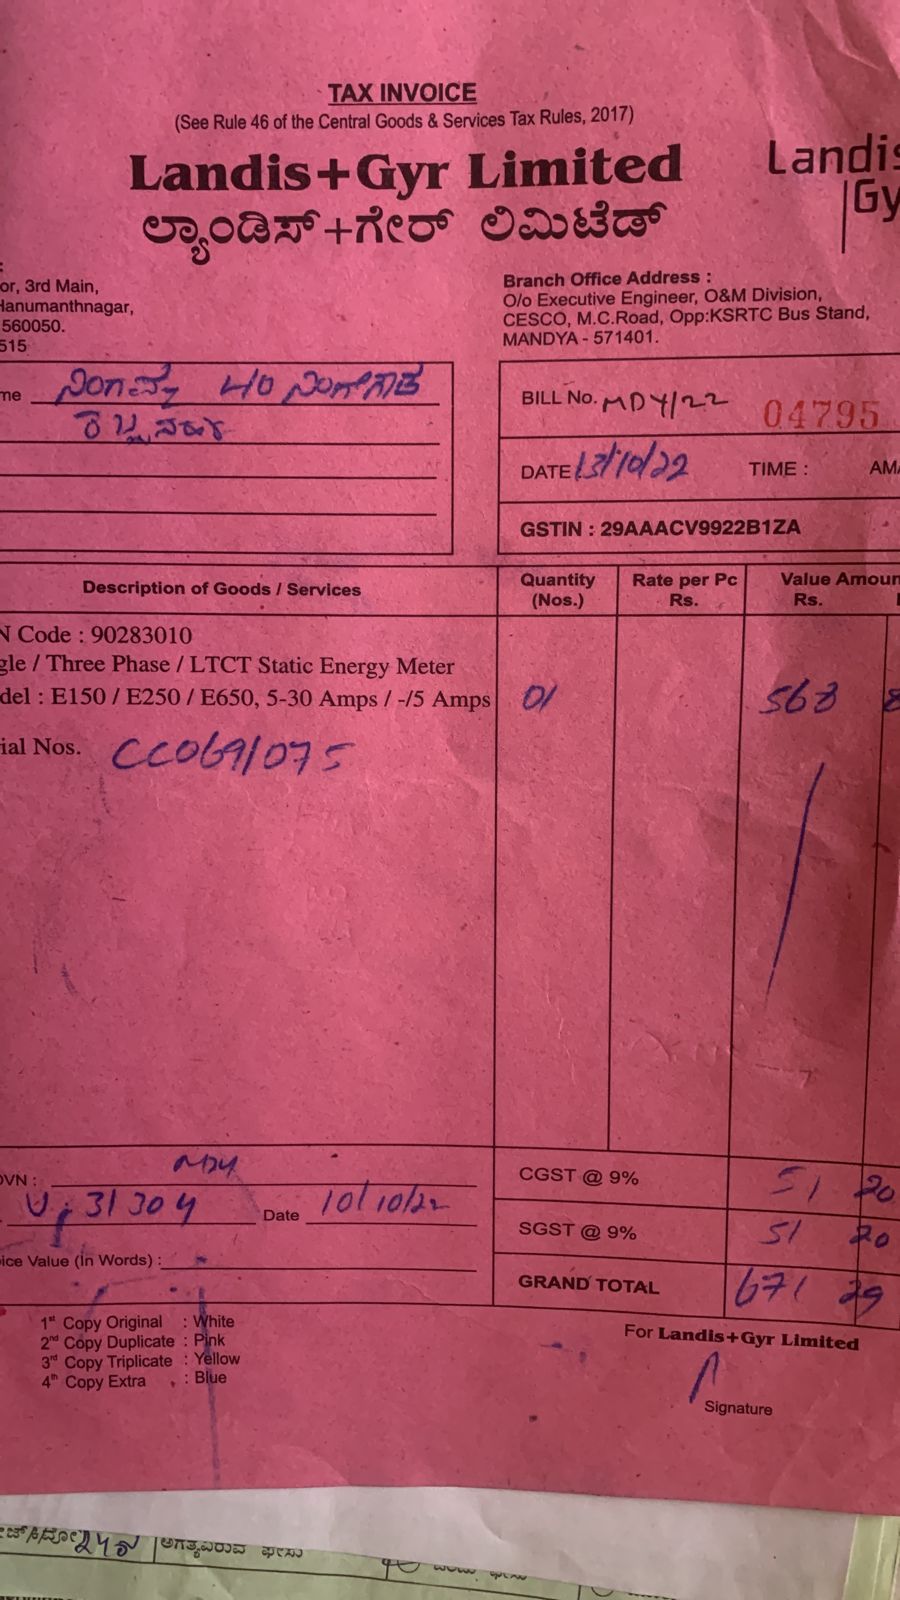 TAX INVOICE
(See Rule 46 of the Central Goods & Services Tax Rules, 2017)
Landis+Gyr Limited
ಲ್ಯಾಂಡಿಸ್+ಗೇರ್ ಲಿಮಿಟೆಡ್
Landis
Gy
or, 3rd Main,
Hanumanthnagar,
560050.
515
Branch Office Address :
O/o Executive Engineer, O&M Division,
CESCO, M.C.Road, Opp:KSRTC Bus Stand,
MANDYA - 571401.
me
BILL No. MDY/22 04795
DATE 13/10/22 TIME : AM/
GSTIN : 29AAACV9922B1ZA
Description of Goods / Services Quantity (Nos.) Rate per Pc Rs. Value Amoun Rs.
N Code : 90283010
gle / Three Phase / LTCT Static Energy Meter
del : E150 / E250 / E650, 5-30 Amps / -/5 Amps 01 568 8
ial Nos. CC0691075
OVN : MDY
31304 Date 10/10/22
ice Value (In Words) :
CGST @ 9% 51 20
SGST @ 9% 51 20
GRAND TOTAL 671 29
1st Copy Original : White
2nd Copy Duplicate : Pink
3rd Copy Triplicate : Yellow
4th Copy Extra : Blue
For Landis+Gyr Limited
Signature
ಅಗತ್ಯವಿರುವ